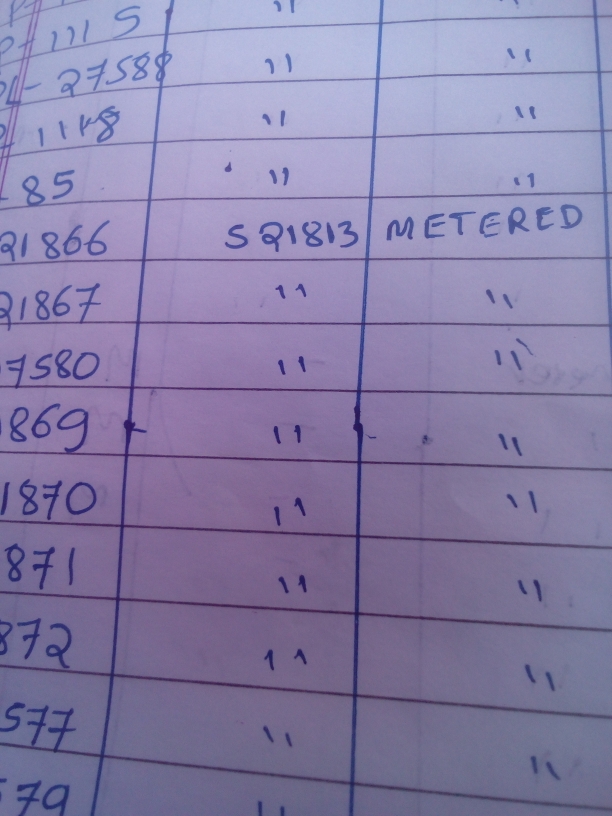 111 5 "
27588 " "
" "
85 " "
21866 S21813 METERED
21867 " "
7580 " "
869 " "
1870 " "
871 " "
872 " "
577 " "
579 "